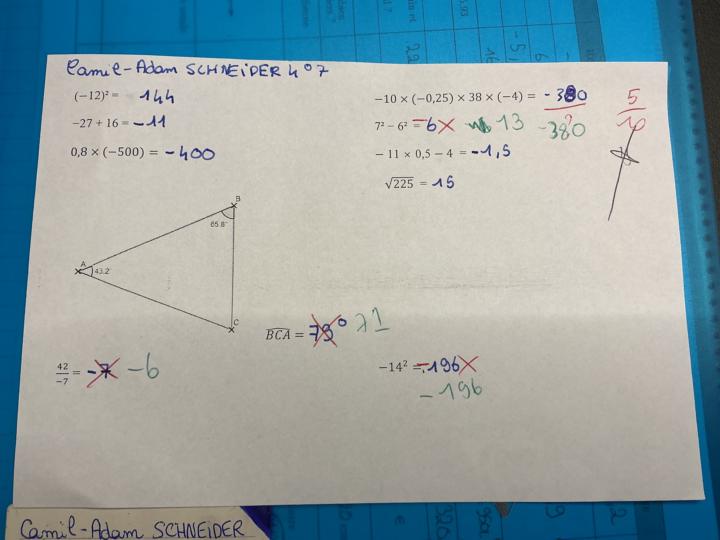 Camil-Adam SCHNEIDER 4°7
(−12)² = 144
−27 + 16 = −11
0,8 × (−500) = −400
−10 × (−0,25) × 38 × (−4) = −380
7² − 6² = −6 13 −380
− 11 × 0,5 − 4 = −1,5
√225 = 15
5
10
B
65.8°
A
43.2°
C
BCA = 73° 71
42
−7 = −7 −6
−14² = −196
−196
Camil-Adam SCHNEIDER